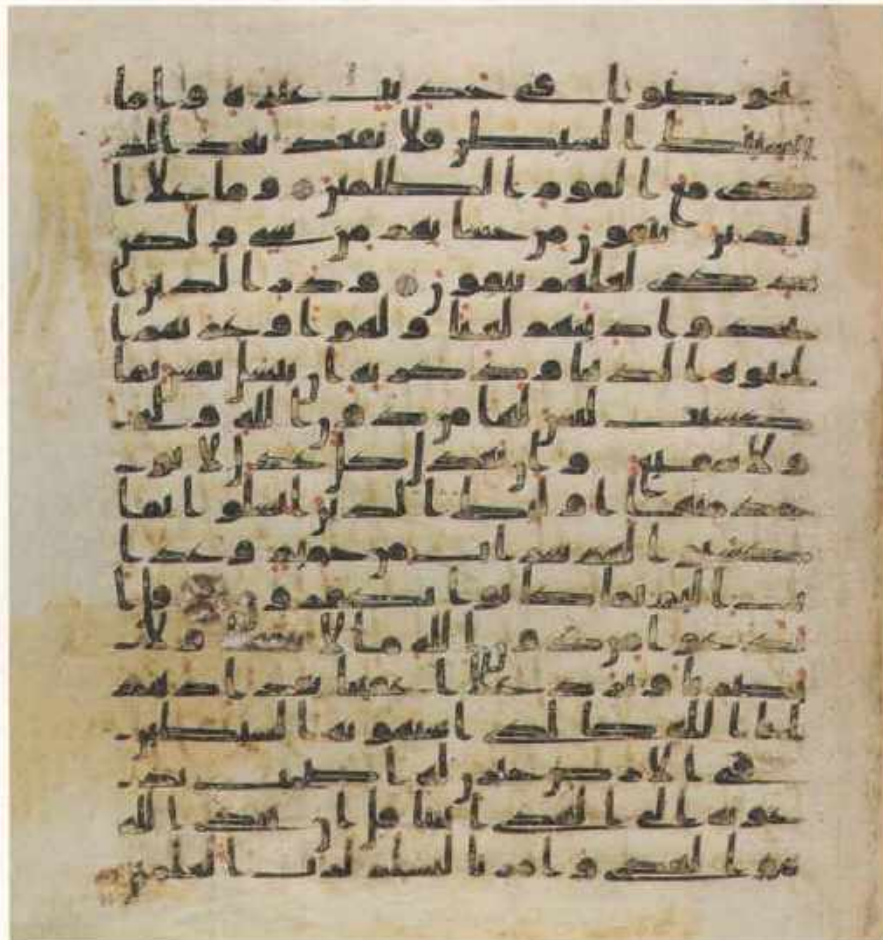 يخوضوا في حديث غيره واما
ينسينك الشيطن فلا تقعد بعد الذ
كرى مع القوم الظلمين وما على ا
لذين يتقون من حسابهم من شيء ولكن
ذكرى لعلهم يتقون وذر الذين ا
تخذوا دينهم لعبا ولهوا وغرتهم ا
لحيوه الدنيا وذكر به ان تبسل نفس بما
كسبت ليس لها من دون الله ولي
ولا شفيع وان تعدل كل عدل لا يو
خذ منها اولئك الذين ابسلوا بما
كسبوا لهم شراب من حميم وعذا
ب اليم بما كانوا يكفرون قل ا
ندعوا من دون الله ما لا ينفعنا ولا
يضرنا ونرد على اعقبنا بعد اذ هد
ينا الله كالذي استهوته الشيطين
في الارض حيرن له اصحب يد
عونه الى الهدى ائتنا قل ان هدى الله
هو الهدى وامرنا لنسلم لرب العلمين